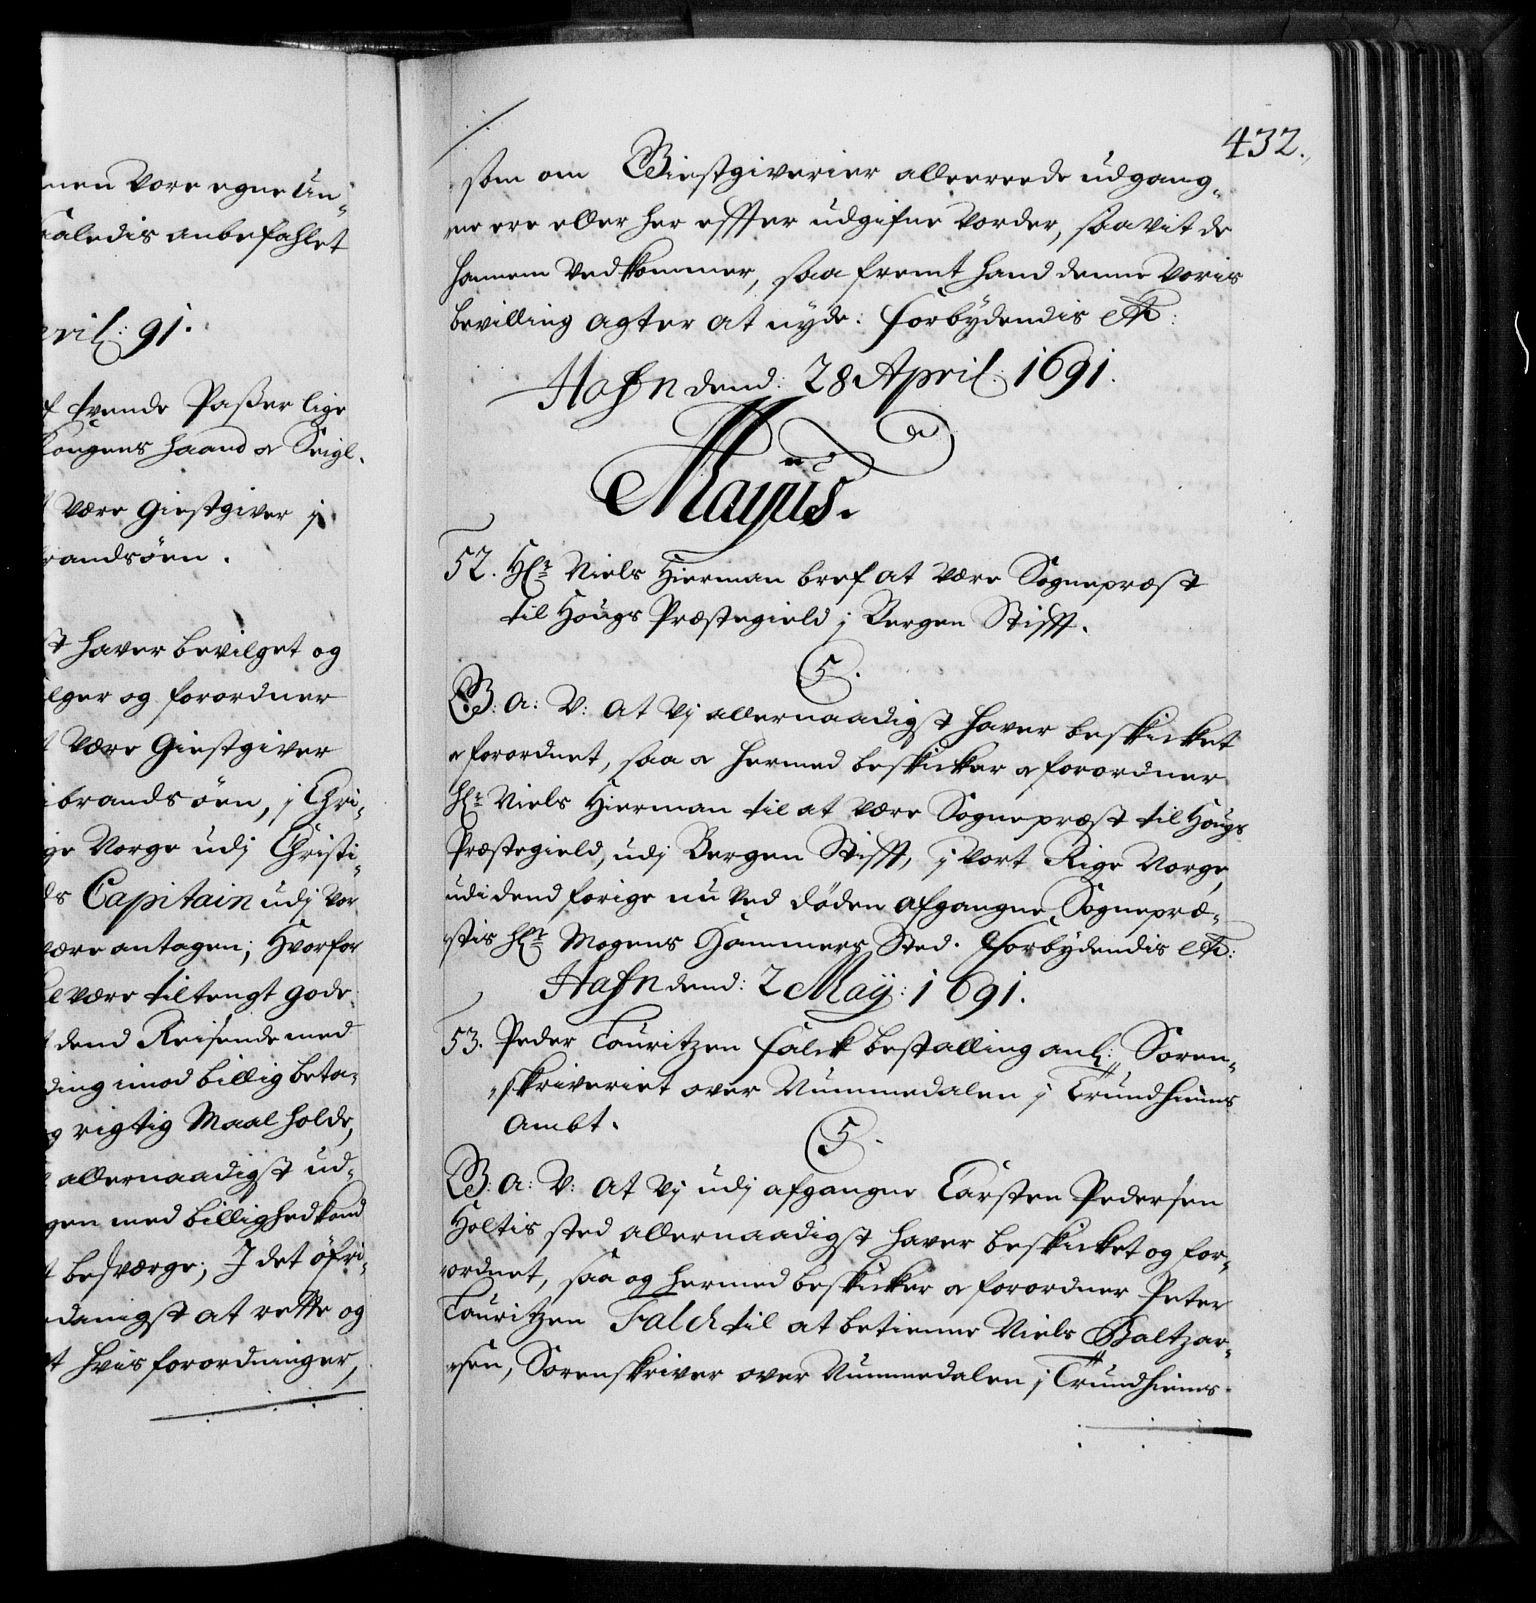 nen vore egne Un-
saaledis anbefahlet
pril: 91.
tvende Paßer lige
Kongens Haand & Seigl.
være Giestgiver j
brandsøen.
haver bevilget og
og forordner
være Giestgiver
brandsøen, j Chri-
ge Norge udj Christi-
ds Capitain udj vor
være antagen; Hvorfor
være tiltengt gode
dend Reisende med
ding imod billig beta-
rigtig Maal holde,
allernaadigst ud-
gen med billighed kand
besværge; J det øfri-
danigst at rette og
hvis forordninger,
432.
som om Giestgiverier allereede udgang-
ne ere eller her effter udgifne vorder, saavit de
hannem vedkommer, saa fremt hand denne voris
bevilling agter at nyde. forbydendis etc:
Hafn dend: 28 April: 1691.
Mayus.
52. Hr: Niels Hierman bref at være Sognepræst
til Hougs Præstegield j Bergen Stifft.
5.
G: A: V: at Vj allernaadigst haver beskicket
& forordnet, saa & hermed beskicker & forordner
Hr: Niels Hierman til at være Sognepræst til Hougs
Præstegield, udj Bergen Stifft, j Vort Rige Norge,
udi dend forige nu ved døden afgangne Sognepræ-
stis Hr: Mogens Hammers Sted. Forbydendis etc:
Hafn dend: 2 Maÿ: 1691.
53. Peder Lauritzen Falck bestalling anl: Soren-
skriveriet over Nummedalen j Trundhiems
Ambt.
5.
G: A: V: at Vj udj afgangne Carsten Pedersen
Holtis sted allernaadigst haver beskicket og for-
ordnet, saa og hermed beskicker & forordner Peter
Lauritzen Falch til at betienne Niels Baltzar-
sen, Sorenskriver over Nummedalen j Trundhiems